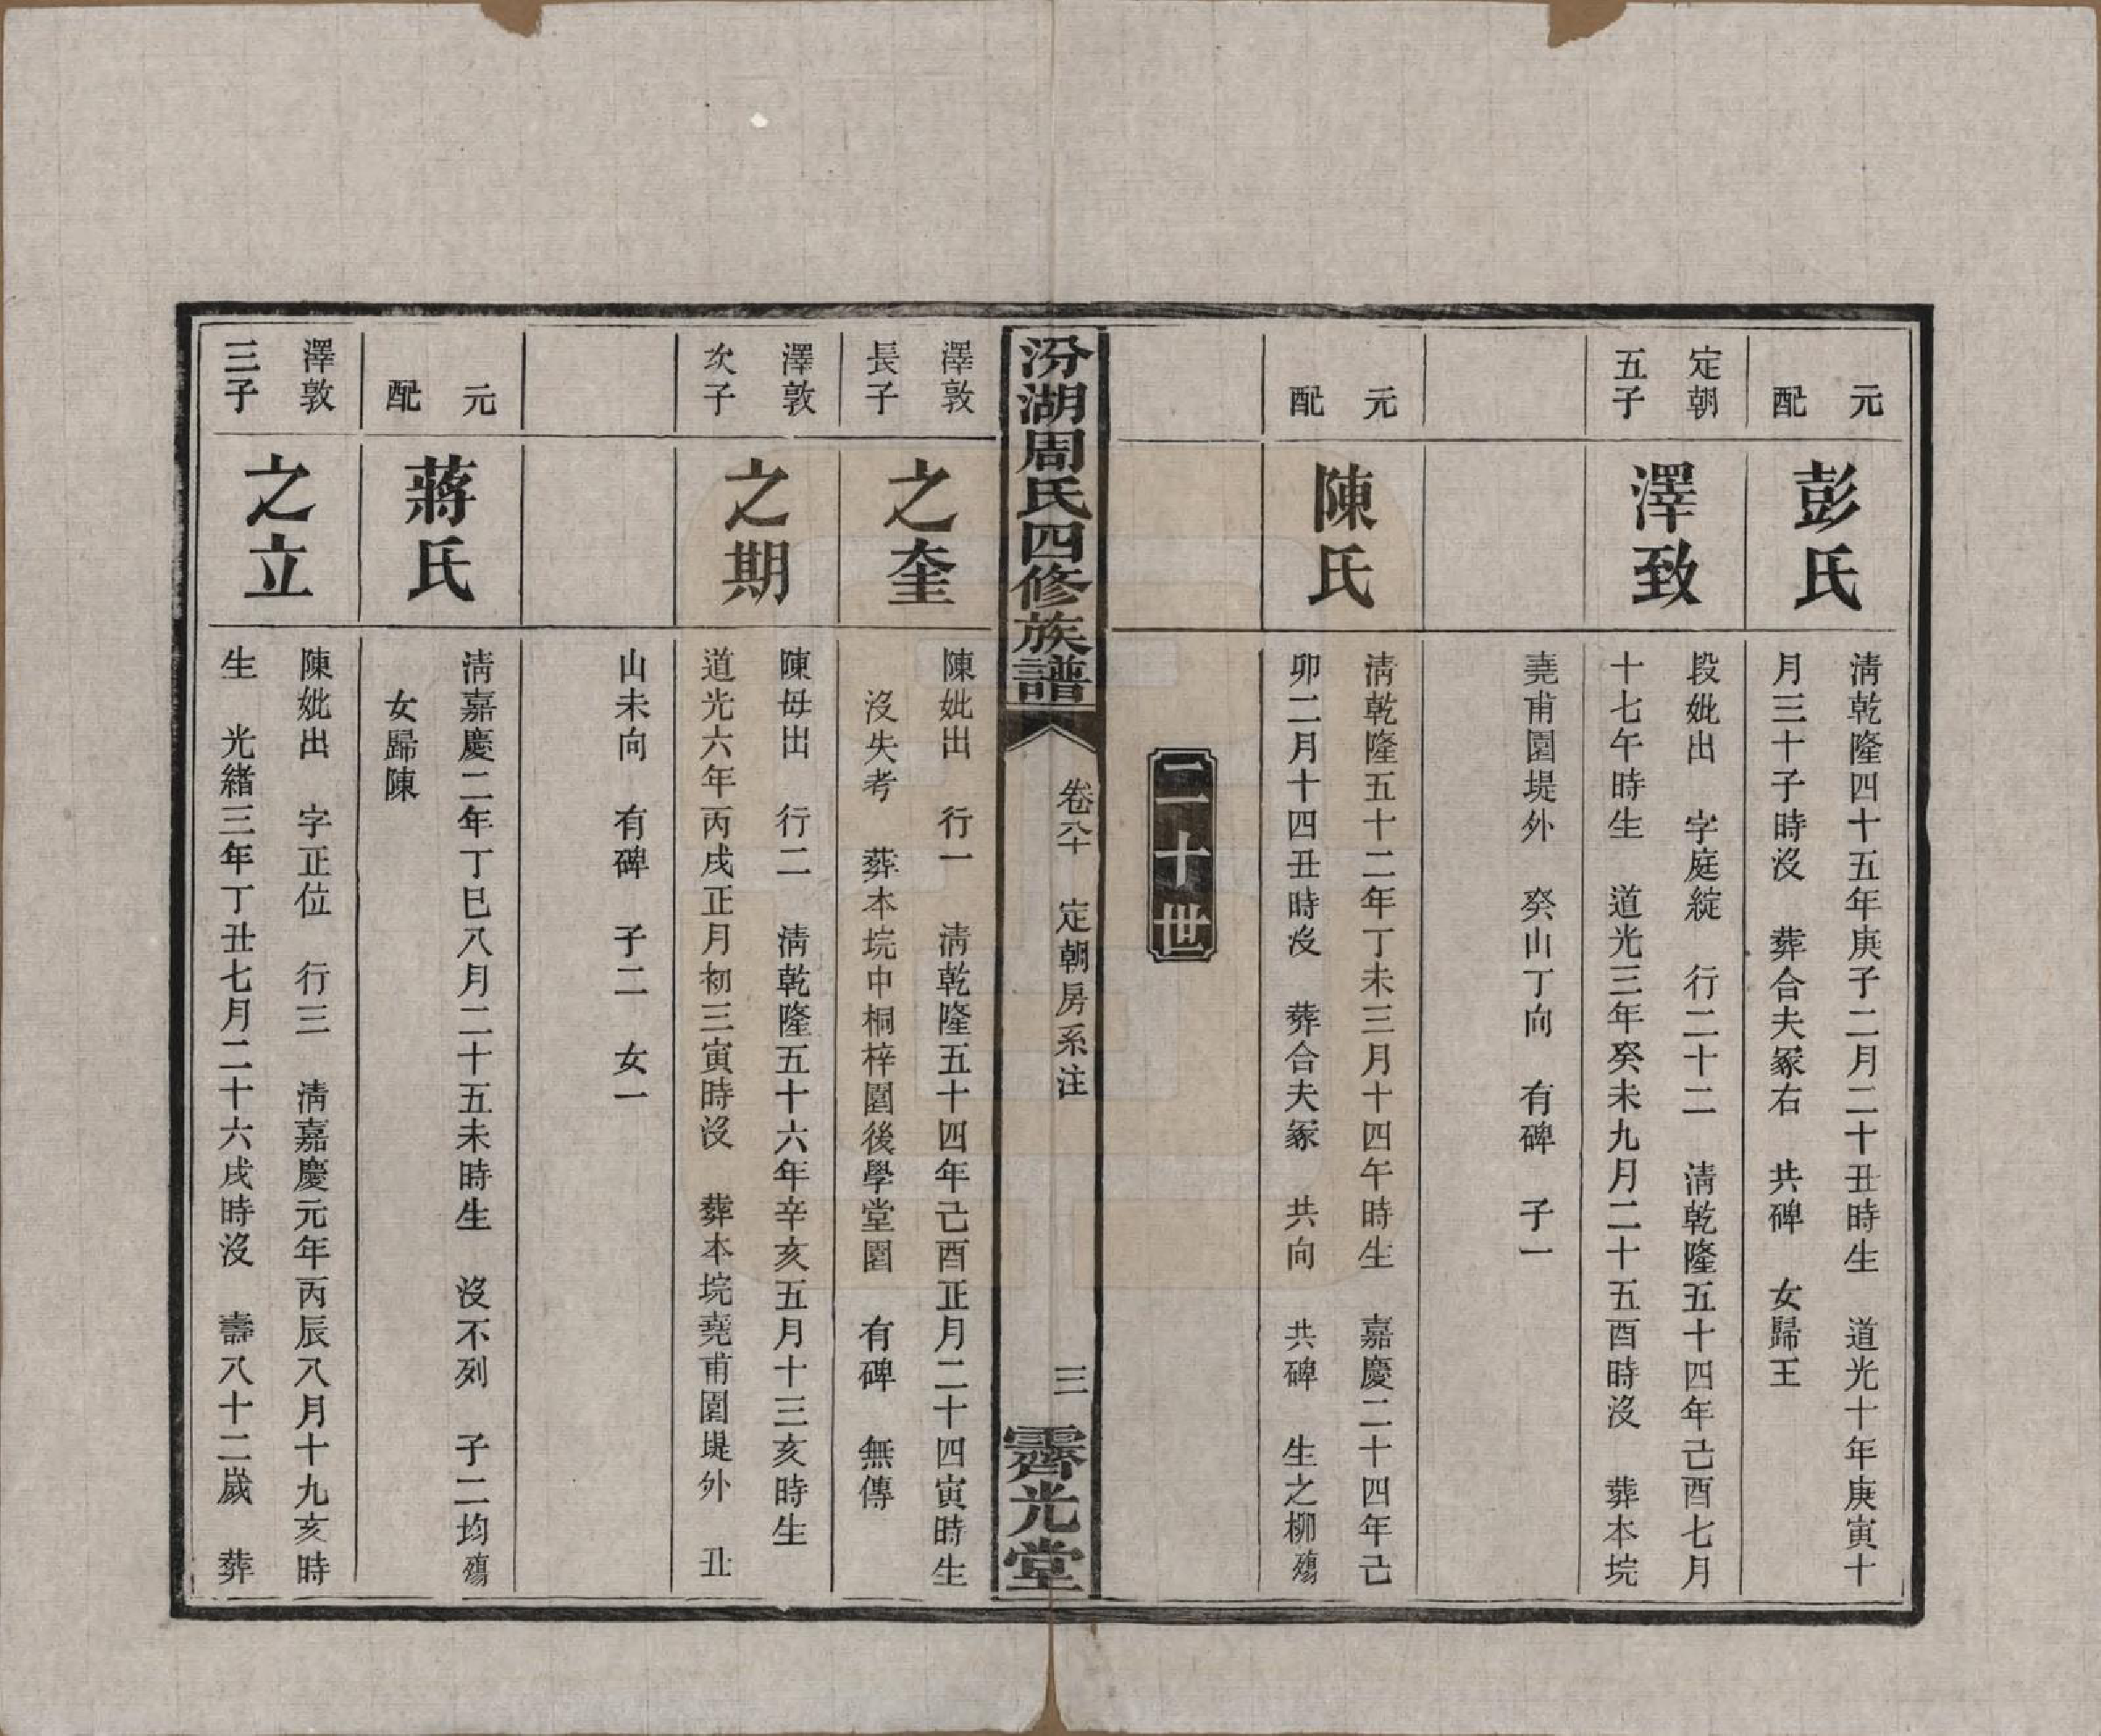 元
配
彭氏
清乾隆四十五年庚子二月二十丑時生　道光十年庚寅十
月三十子時沒　葬合夫冢右　共碑　女歸王
定朝
五子
澤致
段妣出　字庭綻　行二十二　清乾隆五十四年己酉七月
十七午時生　道光三年癸未九月二十五酉時沒　葬本垸
堯甫園堤外　癸山丁向　有碑　子一
元
配
陳氏
清乾隆五十二年丁未三月十四午時生　嘉慶二十四年己
卯二月十四丑時沒　葬合夫冢　共向　共碑　生之柳殤
二十世
汾湖周氏四修族譜
卷六十　定朝房系注
三
霽光堂
澤敦
長子
之奎
陳妣出　行一　清乾隆五十四年己酉正月二十四寅時生
沒失考　葬本垸中桐梓園後學堂園　有碑　無傳
澤敦
次子
之期
陳母出　行二　清乾隆五十六年辛亥五月十三亥時生
道光六年丙戌正月初三寅時沒　葬本垸堯甫園堤外　丑
山未向　有碑　子二　女一
元
配
蔣氏
清嘉慶二年丁巳八月二十五未時生　沒不列　子二均殤
女歸陳
澤敦
三子
之立
陳妣出　字正位　行三　清嘉慶元年丙辰八月十九亥時
生　光緒三年丁丑七月二十六戌時沒　壽八十二歲　葬